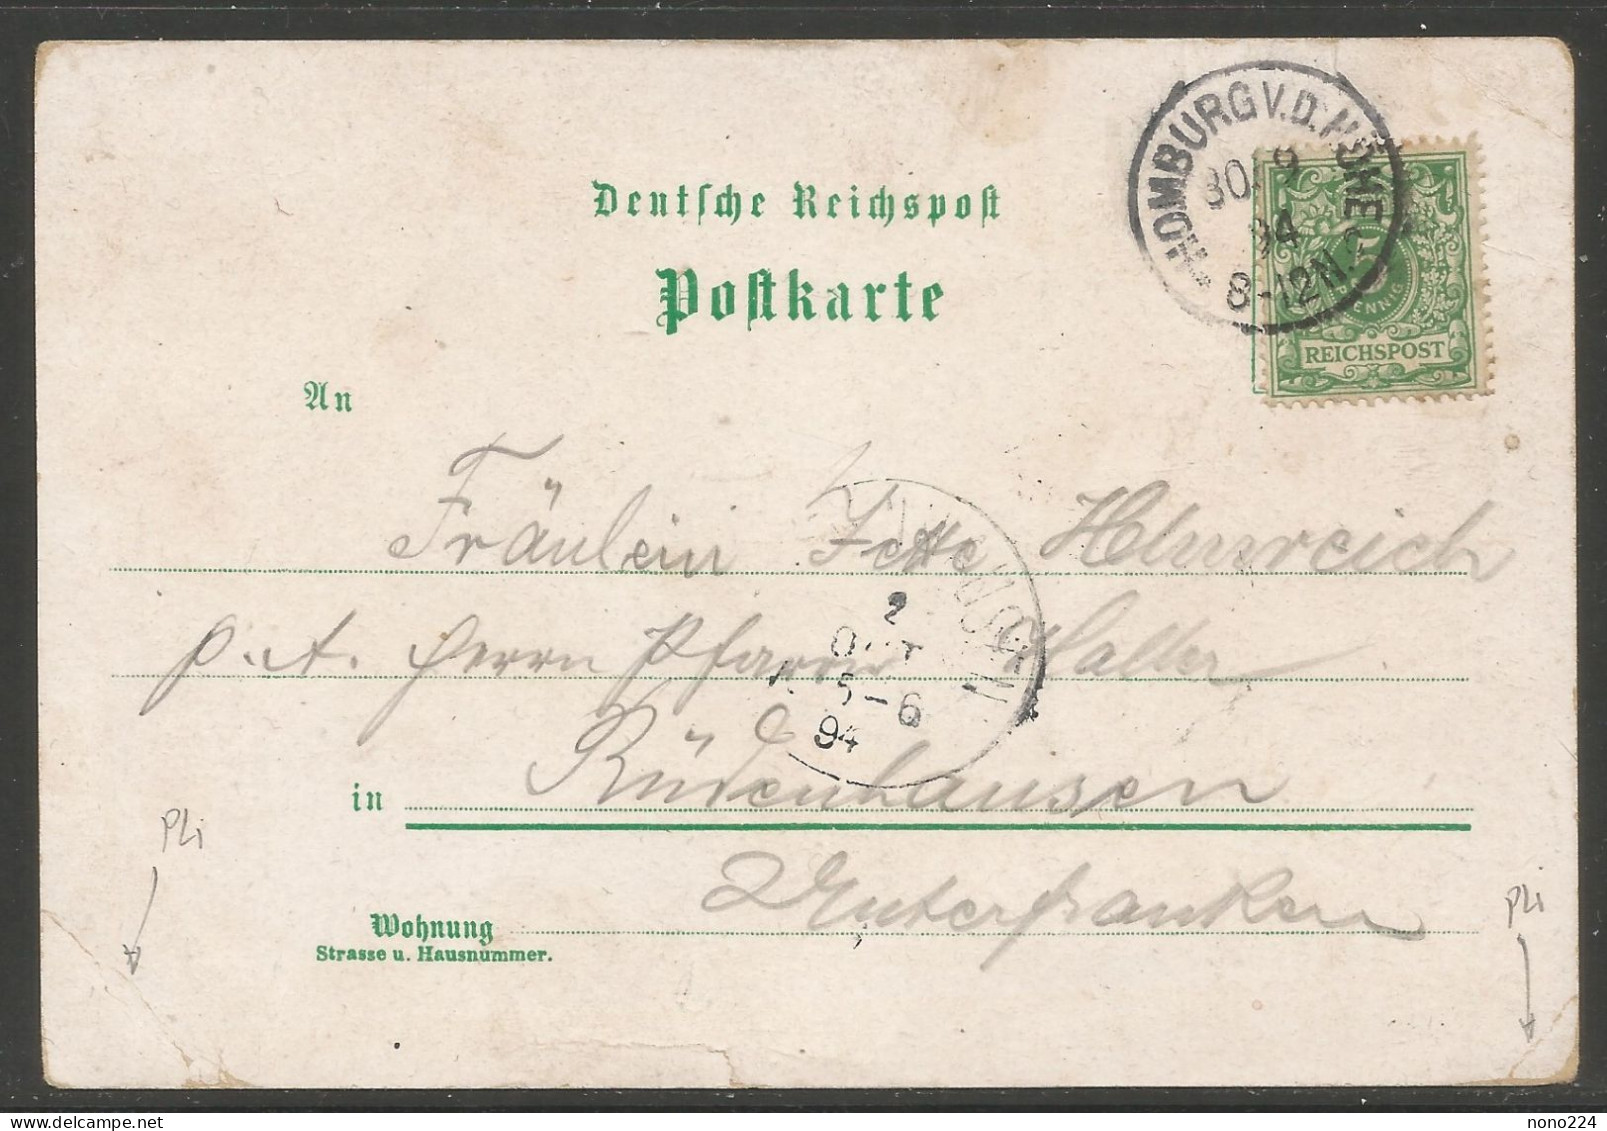 HOMBURG V.D. HÖHE
30/9
94
8-12N. 2
PFENNIG
REICHSPOST
Deutsche Reichspost
Postkarte
An
Fräulein Jette Helmreich
p. A. Herrn Pfarrer Haller
2
OCT
5-6
94
in Rüdenhausen
Unterfranken
Wohnung
Strasse u. Hausnummer.
Pli
Pli
nono224